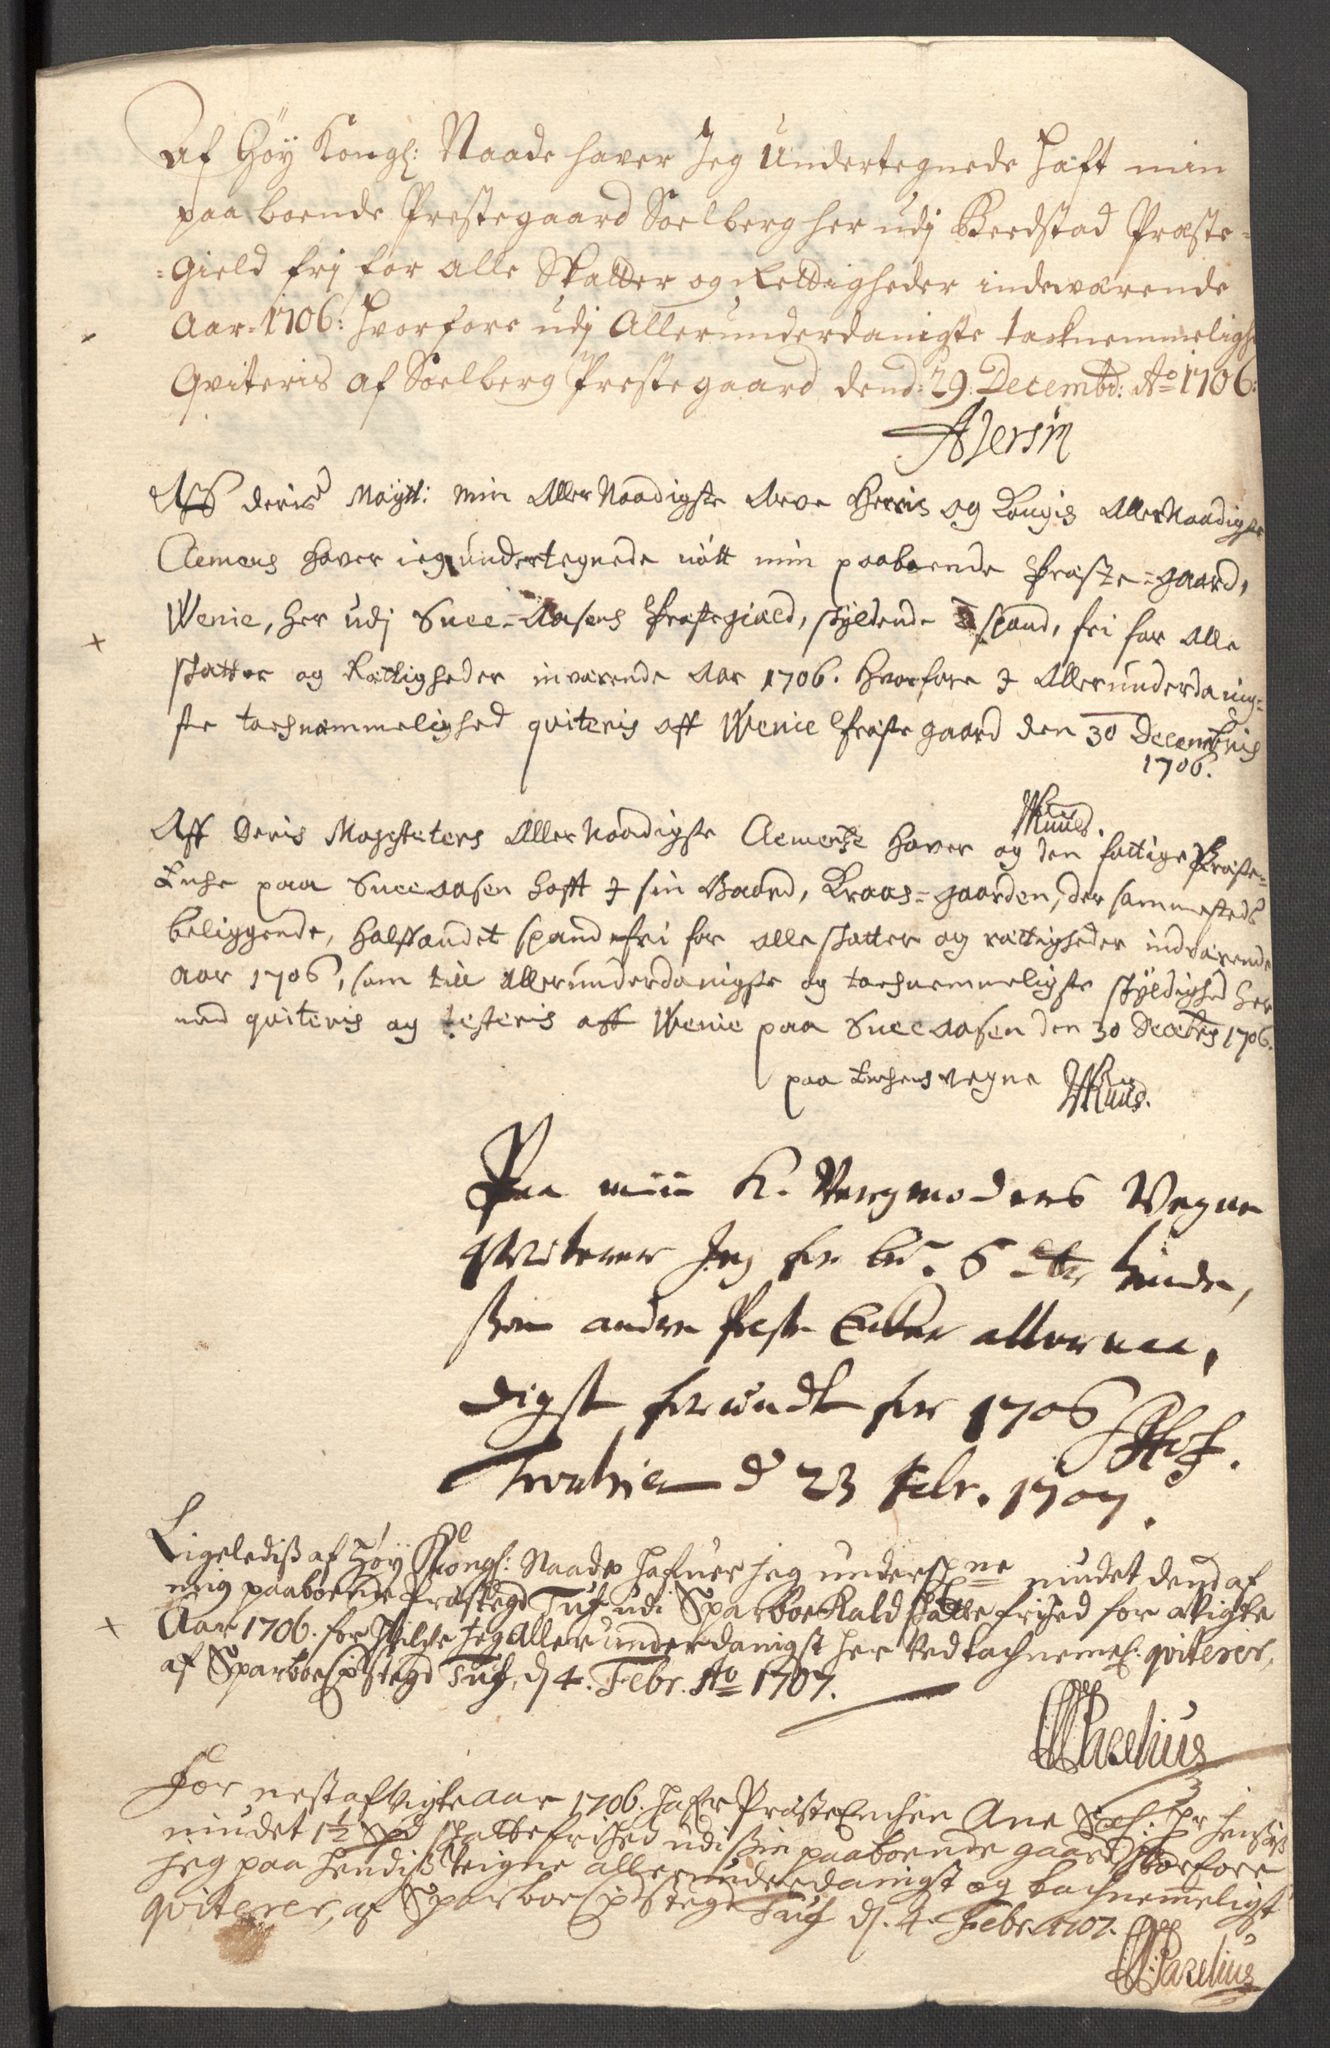 Af Höy Kongl: Naade haver Jeg Undertegnede haft min
paa boende Prestegaard Soelberg her udj Beedstad Præste=
=Gield frj for alle Skatter og Rettigheder indeværende
Aar 1706: Hvorfore udj Allerunderdanigste tacknemmeligh
Qviteris af Soelberg Prestegaard dend: 29 Decembr: Ao 1706:
AJersin
Aff deris Maÿtt: min Aller Naadigste Arve Herris og Kongis AllerNaadigste
Clemens haver ieg undertegnede nött min paaboende Præste=gaard,
Wenie, her udj Snee=Aasens Præstegiæld, skÿldende 3 spand, fri for alle
skatter og Rættigheder inværende Aar 1706. Hvorfore I Allerunderdanig=
ste tacknæmmelighed qviteris aff Wenie Præstegaard den 30 Decembris
1706.
Aff Deris Mayesteters AllerNaadigste Clementz haver og den fattige Præste=
Encke paa Sneeaasen hafft I sin Gaard, Kraas=gaarden, der sammesteds
beliggende, halffandet spand fri for alle skatter og rættigheder indværende
aar 1706, som till allerunderdanigste og tacknemmeligste skÿldighed her
med qviteris og testeris aff Wenie paa Sneeaasen den 30 Decebris 1706.
paa Enckens vegne
Paa min K. Vermoders Vegne
qviterer Jeg for hendes
som andre Preste Encker allernaa,
digst forundt for 1706
Tronhiem d 23 Febr. 1707.
Ligeledis af Höy Kongl: Naade hafuer jeg underschne nudet dend af
mig paaboende Præstegd Tuf udi Sparboe Kald skatte frihed for afvigte
Aar 1706. for hvilcke Jeg Aller underdanigst her ved tachnemel: qviterer,
af Sparboe Pstegd Tuf, d 4. Febr. Ao 1707.
For nest afvigte aar 1706. hafr Præste Enchen Ane Sal: Hr Hensis
nudet 1½ Spd skatte frihed udi sin paaboende gaard hvorfore
jeg paa hendis veigne allerunderdanigst og tachnemmeligst
qviterer, af Sparboe Pstegd Tuf d. 4. Febr. 1707.